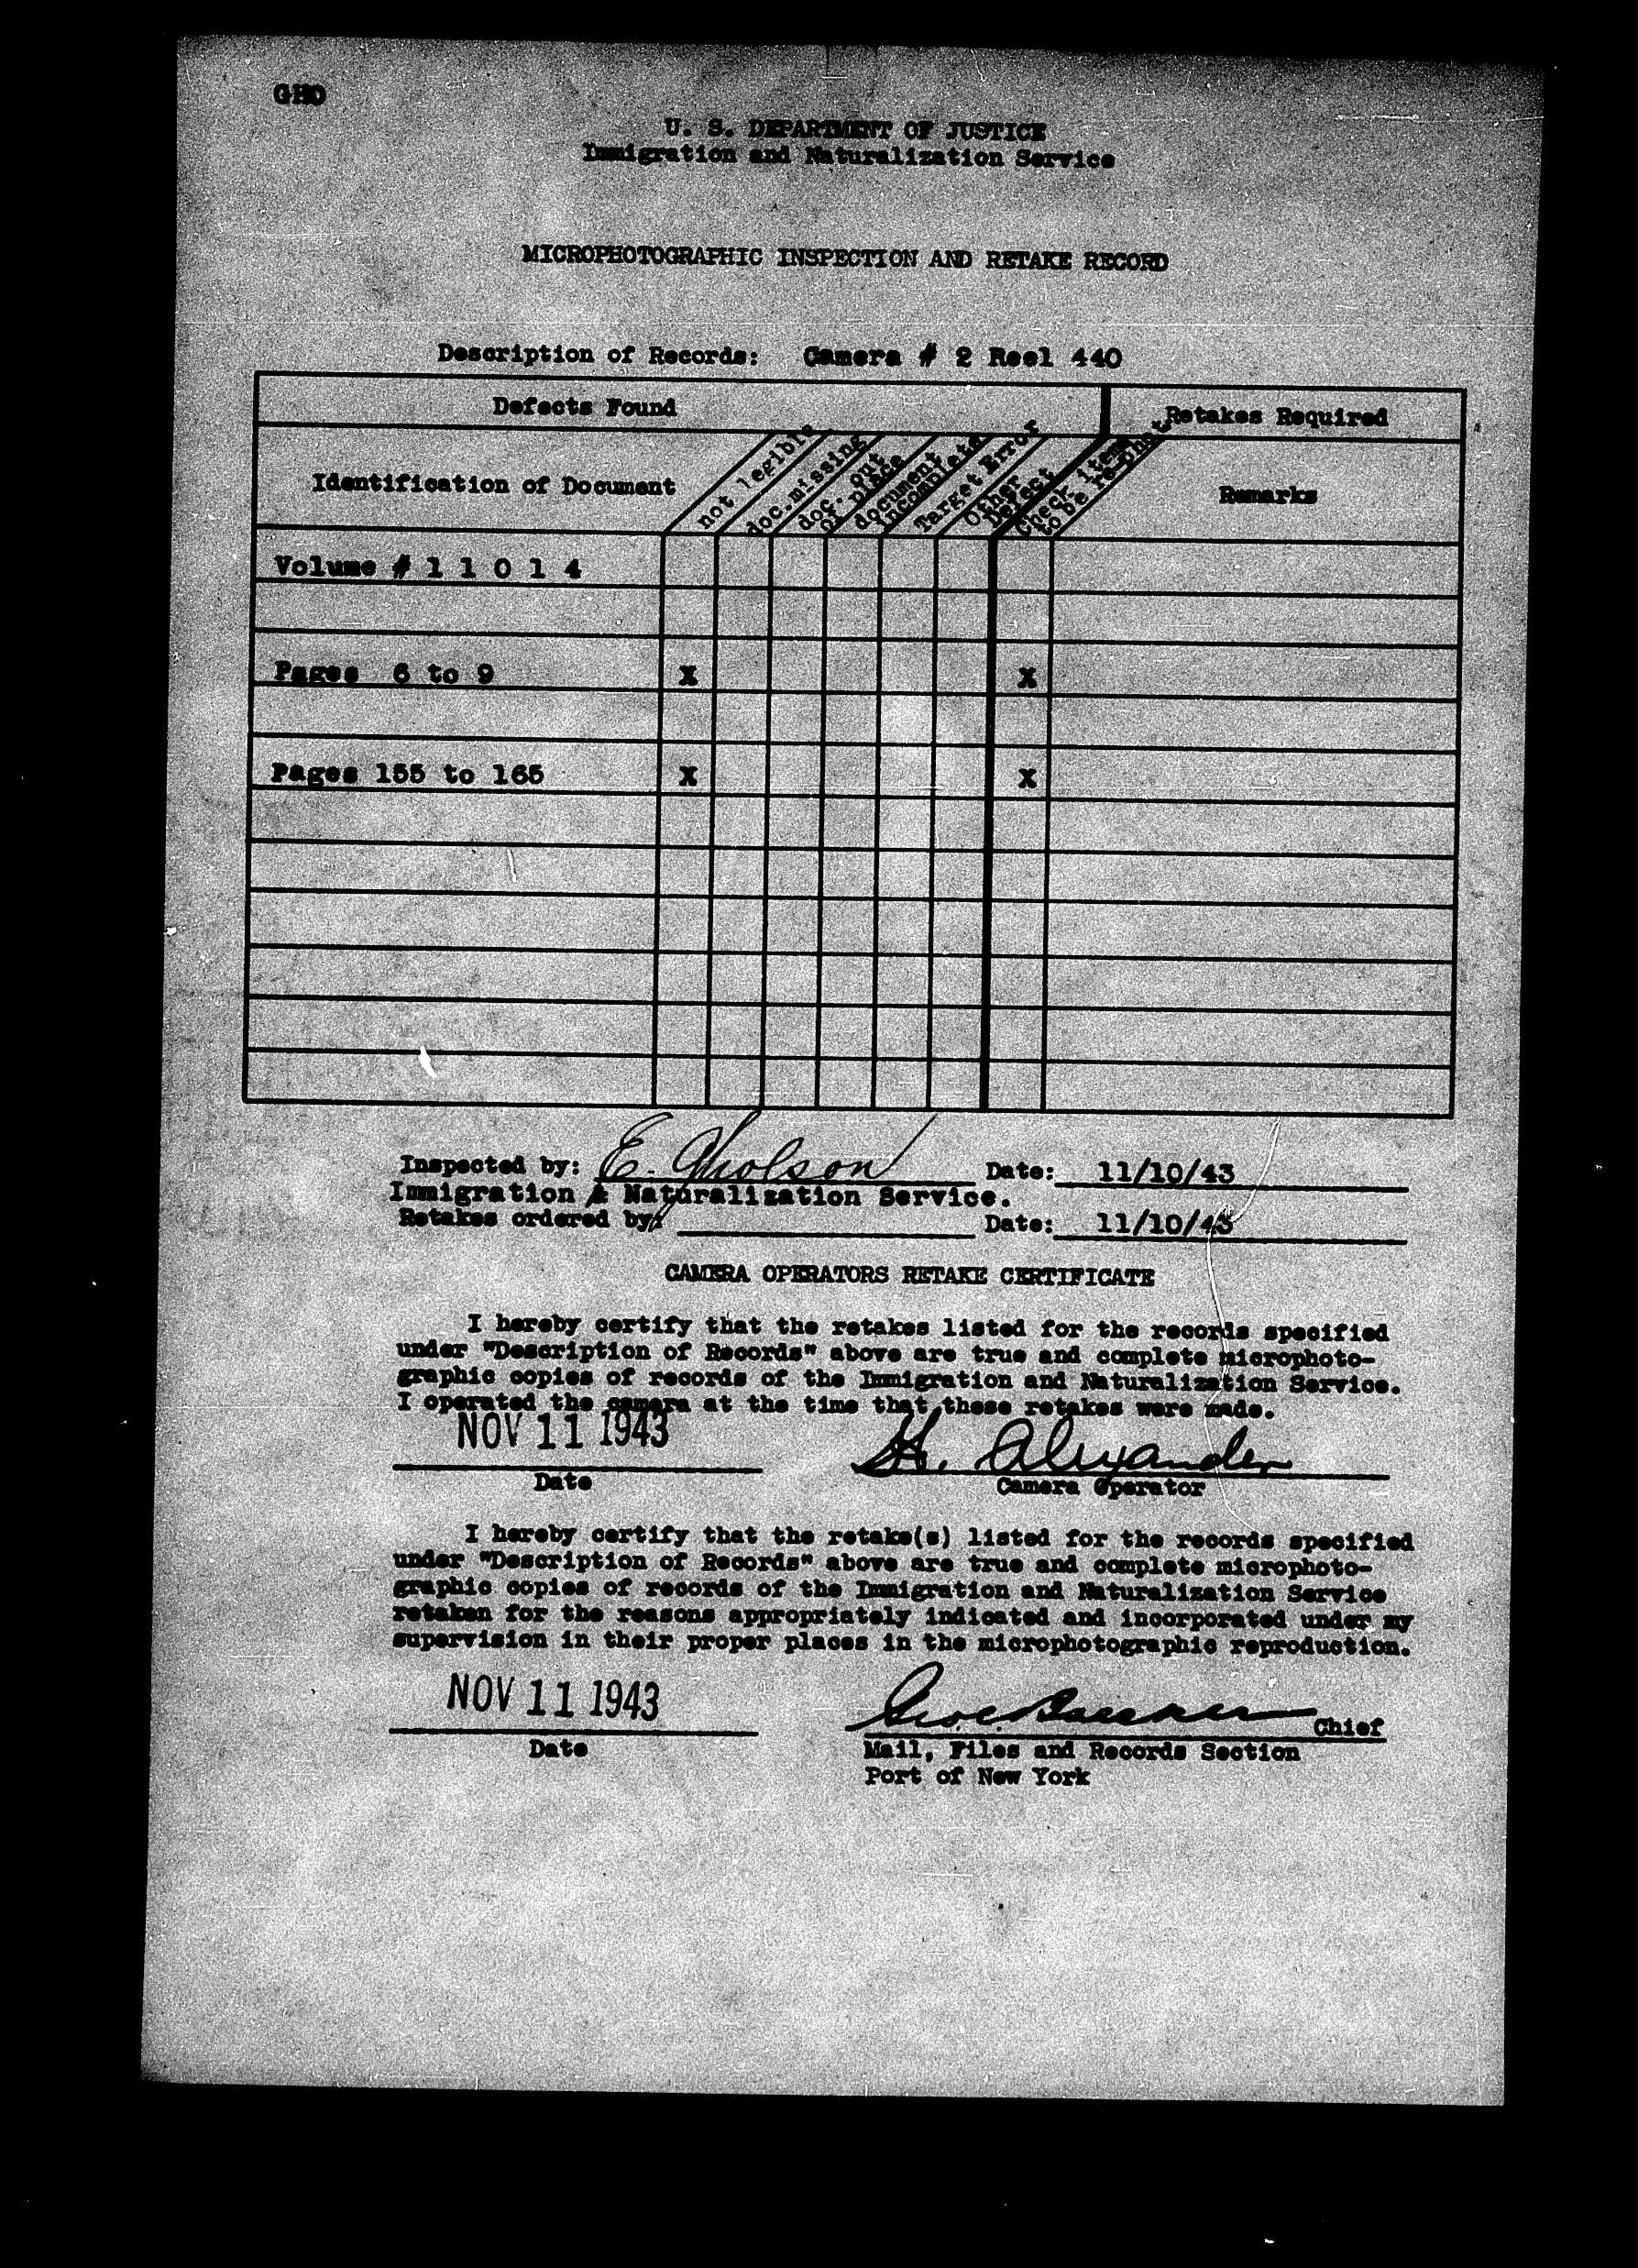 GHO
U. S. DEPARTMENT OF JUSTICE
Immigration and Naturalization Service
MICROPHOTOGRAPHIC INSPECTION AND RETAKE RECORD
Description of Records: Camera # 2 Reel 440
Defects Found
Retakes Required
Identification of Document
not legible
doc.missing
doc. out
of place
document
incomplete
Target Error
Other
Defect
Check item
to be re-phot.
Remarks
Volume # 1 1 0 1 4
Pages 6 to 9 X X
Pages 155 to 165 X X
Inspected by: E. Gholson Date: 11/10/43
Immigration & Naturalization Service.
Retakes ordered by: Date: 11/10/43
CAMERA OPERATORS RETAKE CERTIFICATE
I hereby certify that the retakes listed for the records specified
under "Description of Records" above are true and complete microphoto-
graphic copies of records of the Immigration and Naturalization Service.
I operated the camera at the time that these retakes were made.
NOV 11 1943 H. Alexander
Date Camera Operator
I hereby certify that the retake(s) listed for the records specified
under "Description of Records" above are true and complete microphoto-
graphic copies of records of the Immigration and Naturalization Service
retaken for the reasons appropriately indicated and incorporated under my
supervision in their proper places in the microphotographic reproduction.
NOV 11 1943
Chief
Date Mail, Files and Records Section
Port of New York